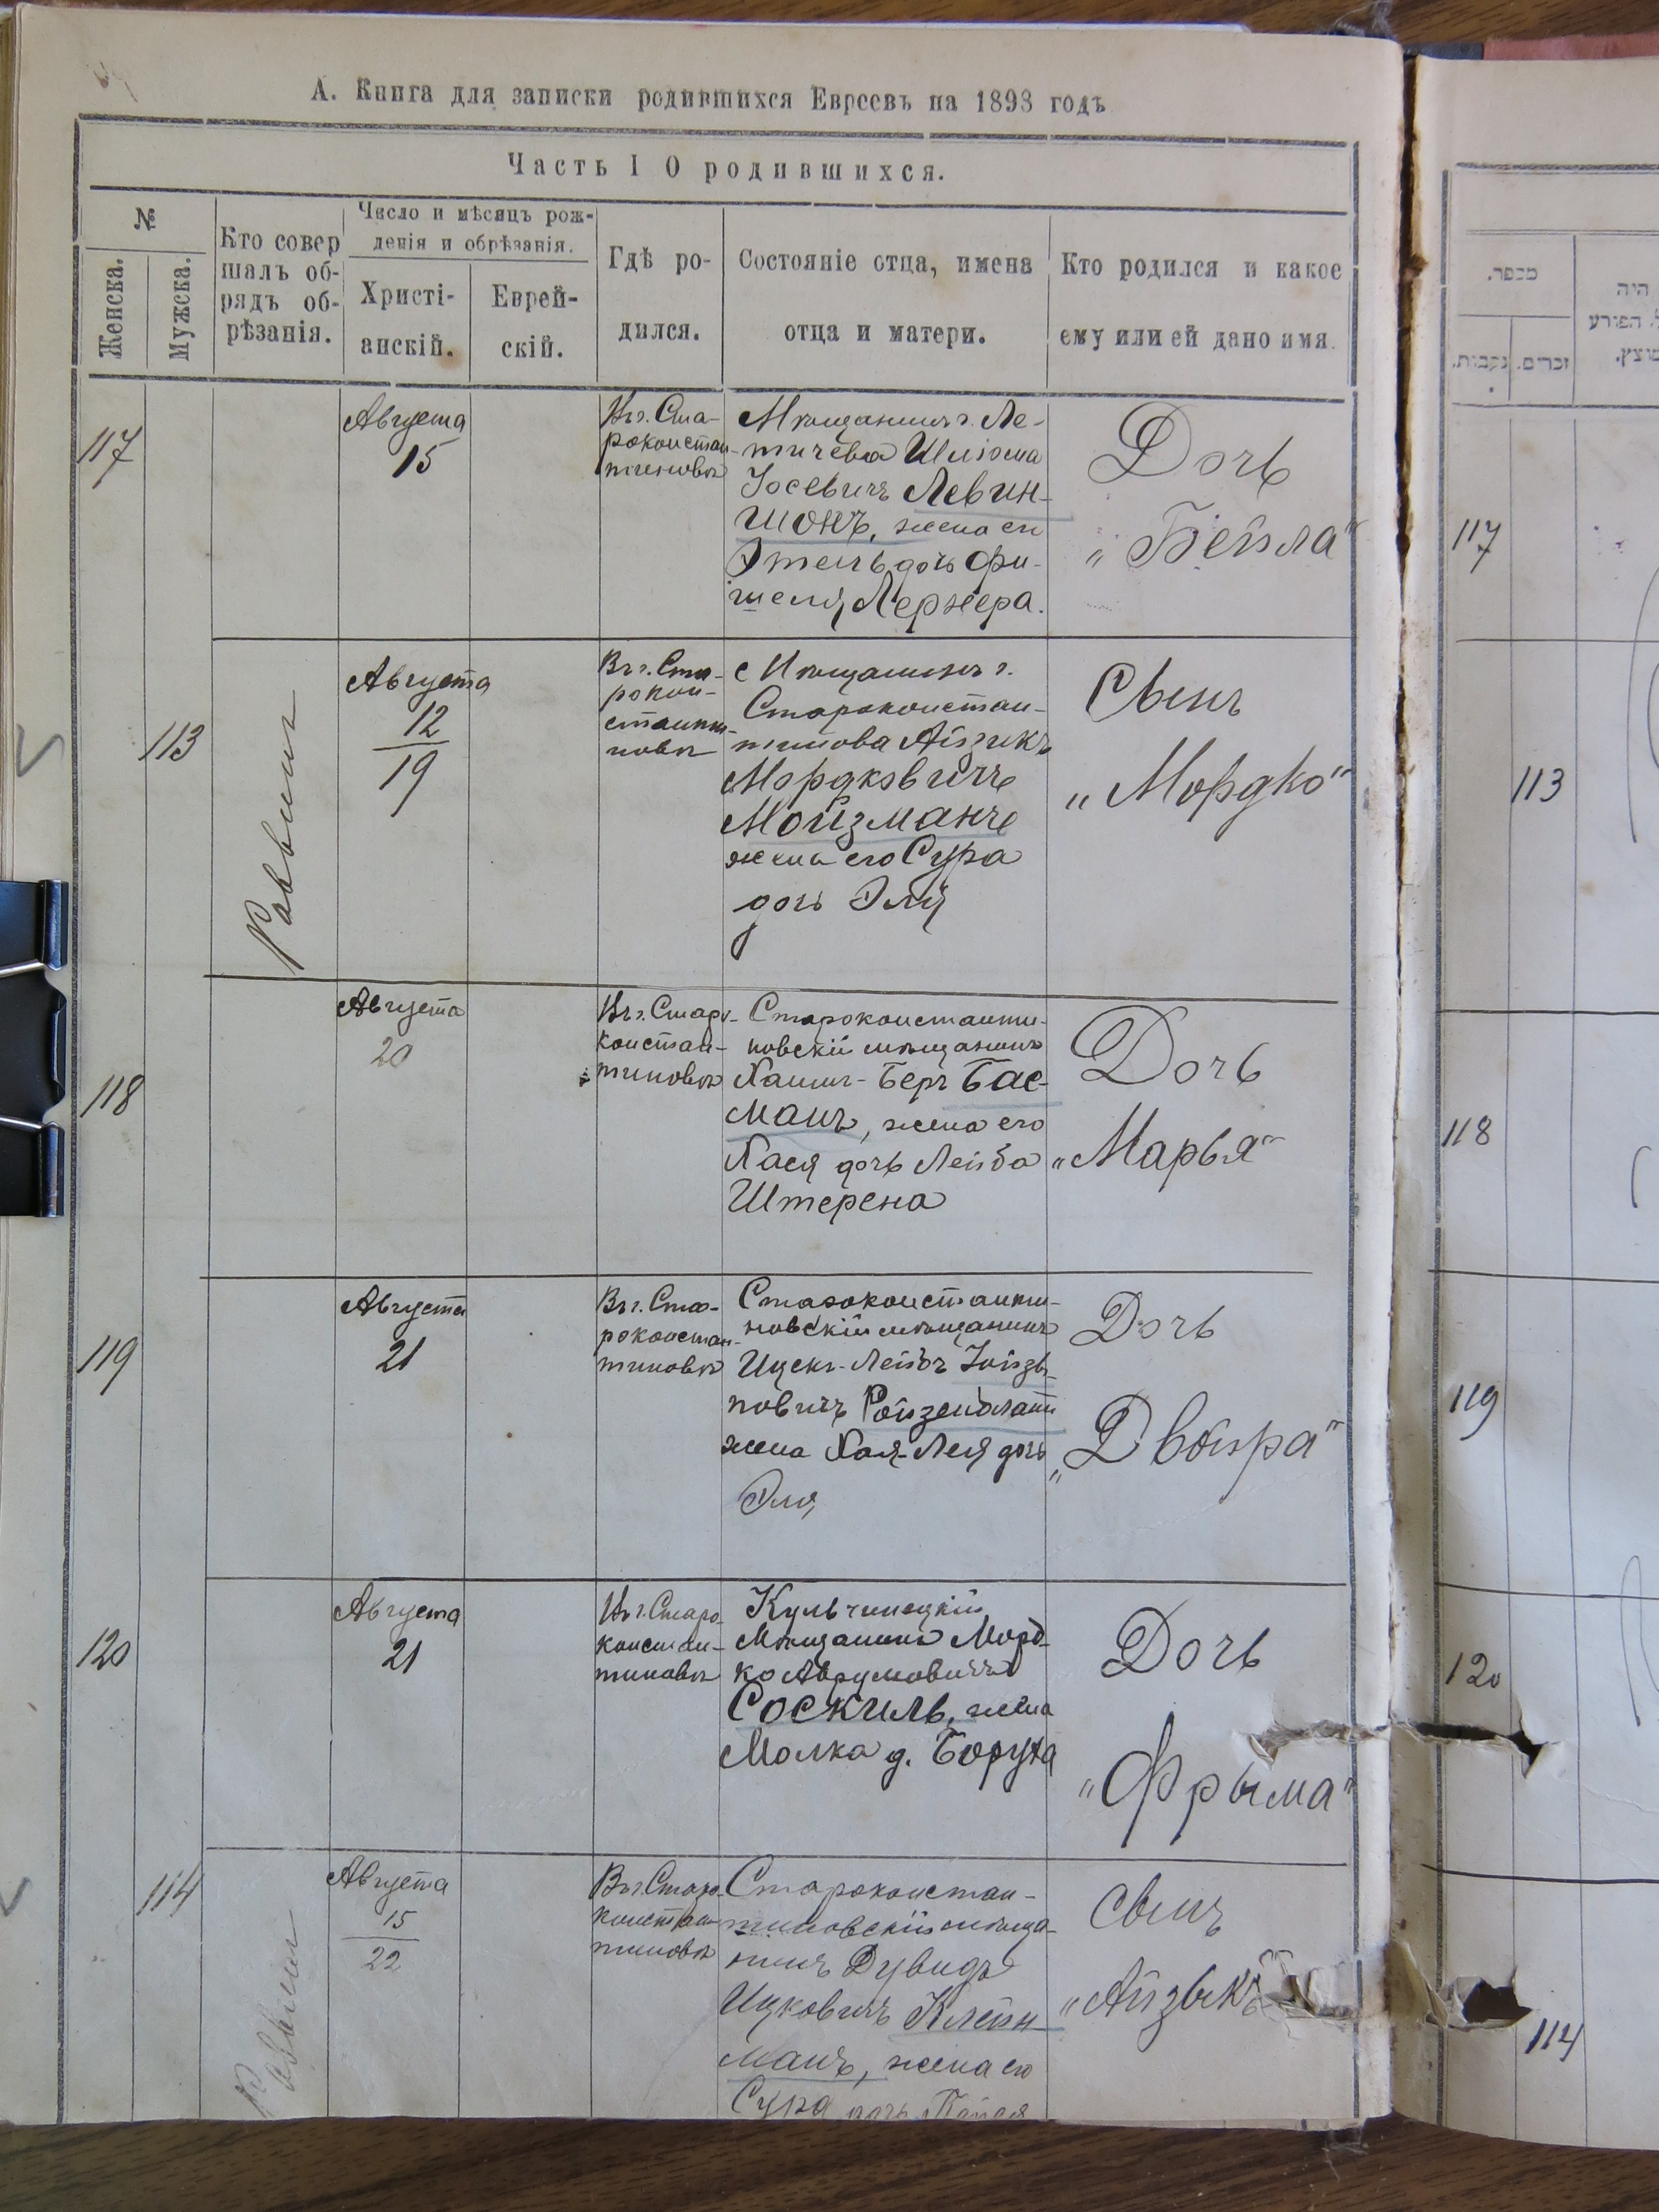 А. Книга для записки родившихся Евреевъ на 1898 годъ
Часть I О родившихся.
№
Женска.
Мужска.
Кто совер
шалъ об-
рядъ об-
рѣзанія.
Число и мѣсяцъ рож-
денія и обрѣзанія.
Христі-
анскій.
Еврей-
скій.
Гдѣ ро-
дился.
Состояніе отца, имена
отца и матери.
Кто родился и какое
ему или ей дано имя.
117
Августа
15
Въ г. Ста-
роконстан-
тиновѣ
Мѣщанинъ г. Ле-
тичева Шлиома
Іосевичъ Левин-
шонъ, жена его
Этель дочь Фи-
шеля Лернера.
Дочь
„Бейла"
113
Раввинъ
Августа
12
19
Въ г. Ста-
рокон-
станти-
новѣ
Мѣщанинъ г.
Староконстан-
тинова Айзикъ
Мордковичъ
Мойзманъ
жена его Сура
дочь Эля
Сынъ
„Мордко"
118
Августа
20
Въ г. Старо-
констан-
тиновѣ
Староконстанти-
новскій мѣщанинъ
Хаимъ-Беръ Бас-
манъ, жена его
Хася дочь Лейба
Штерена
Дочь
„Марья"
119
Августа
21
Въ г. Ста-
роконстан-
тиновѣ
Староконстанти-
новскій мѣщанинъ
Ицекъ-Лейбъ
новичъ Ройзенблатъ
жена Хая-Лея дочь
Эля
Дочь
„Двойра"
120
Августа
21
Въ г. Старо
констан-
тиновѣ
Кульчинецкій
Мѣщанинъ Морд-
ко Аврумовичъ
Соскиль, жена
Малка д. Боруха
Дочь
„Фрыма"
114
Раввинъ
Августа
15
22
Въ г. Старо-
констан-
тиновѣ
Староконстан-
тиновскій мѣща-
нинъ Дувидъ
Ицковичъ Клейн-
манъ, жена его
Сура дочь
Сынъ
„Айзыкъ
מספר.
נקבות.
זכרים.
היה
הפורע
117
113
118
119
120
114